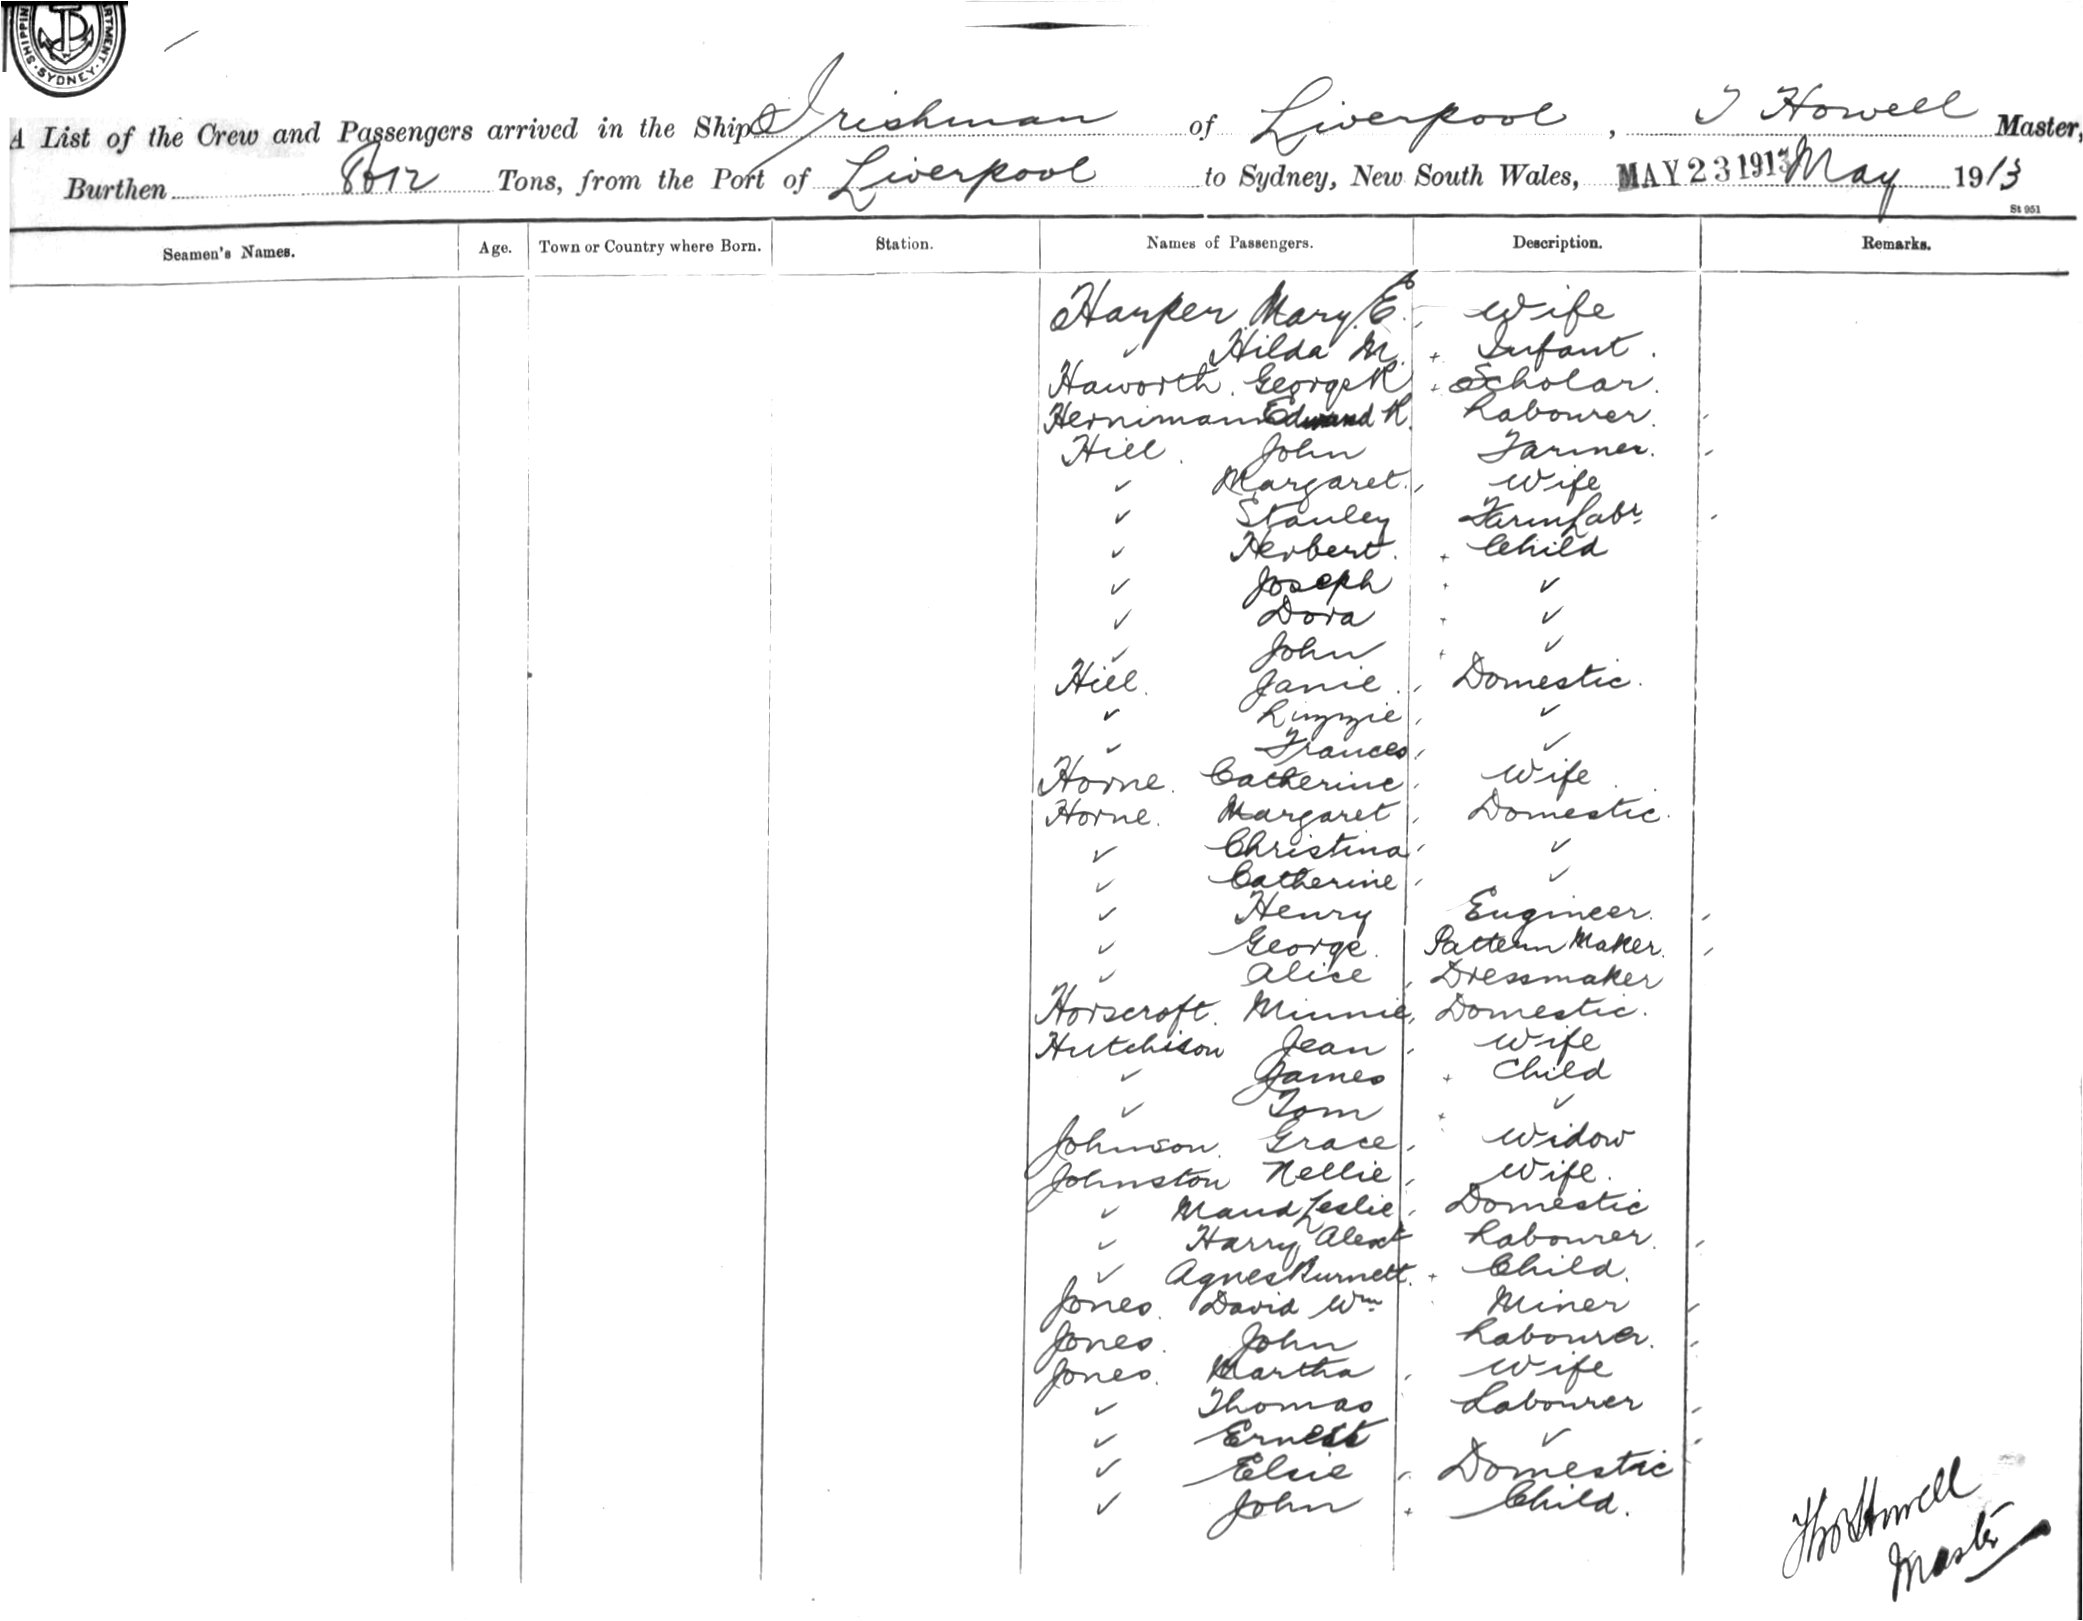 SHIPPIN RTMENT · SYDNEY ·
A List of the Crew and Passengers arrived in the Ship Irishman of Liverpool, T Howell Master,
Burthen Tons, from the Port of Liverpool to Sydney, New South Wales, MAY 23 1913 May 1913
St 951
Seamen's Names. Age. Town or Country where Born. Station. Names of Passengers. Description. Remarks.
Harper Mary E. Wife
✓ Hilda M. Infant.
Haworth. George R Scholar.
Herniman Edward R. Labourer.
Hill. John Farmer.
✓ Margaret. Wife
✓ Stanley Farm Labr
✓ Herbert. Child
✓ Joseph ✓
✓ Dora ✓
✓ John ✓
Hill. Janie. Domestic.
✓ Lizzie ✓
✓ Frances ✓
Horne. Catherine Wife
Horne. Margaret Domestic.
✓ Christina ✓
✓ Catherine ✓
✓ Henry Engineer.
✓ George. Pattern Maker.
✓ Alice Dressmaker
Horscroft. Minnie, Domestic.
Hutchison Jean Wife
✓ James Child
✓ Tom ✓
Johnson. Grace Widow
Johnston Nellie Wife.
✓ Maud Leslie Domestic
✓ Harry Alext Labourer.
✓ Agnes Burnett. Child.
Jones. David Wm Miner
Jones. John Labourer.
Jones. Martha Wife
✓ Thomas Labourer
✓ Ernest ✓
✓ Elsie Domestic
✓ John Child.
Thos Howell
Master